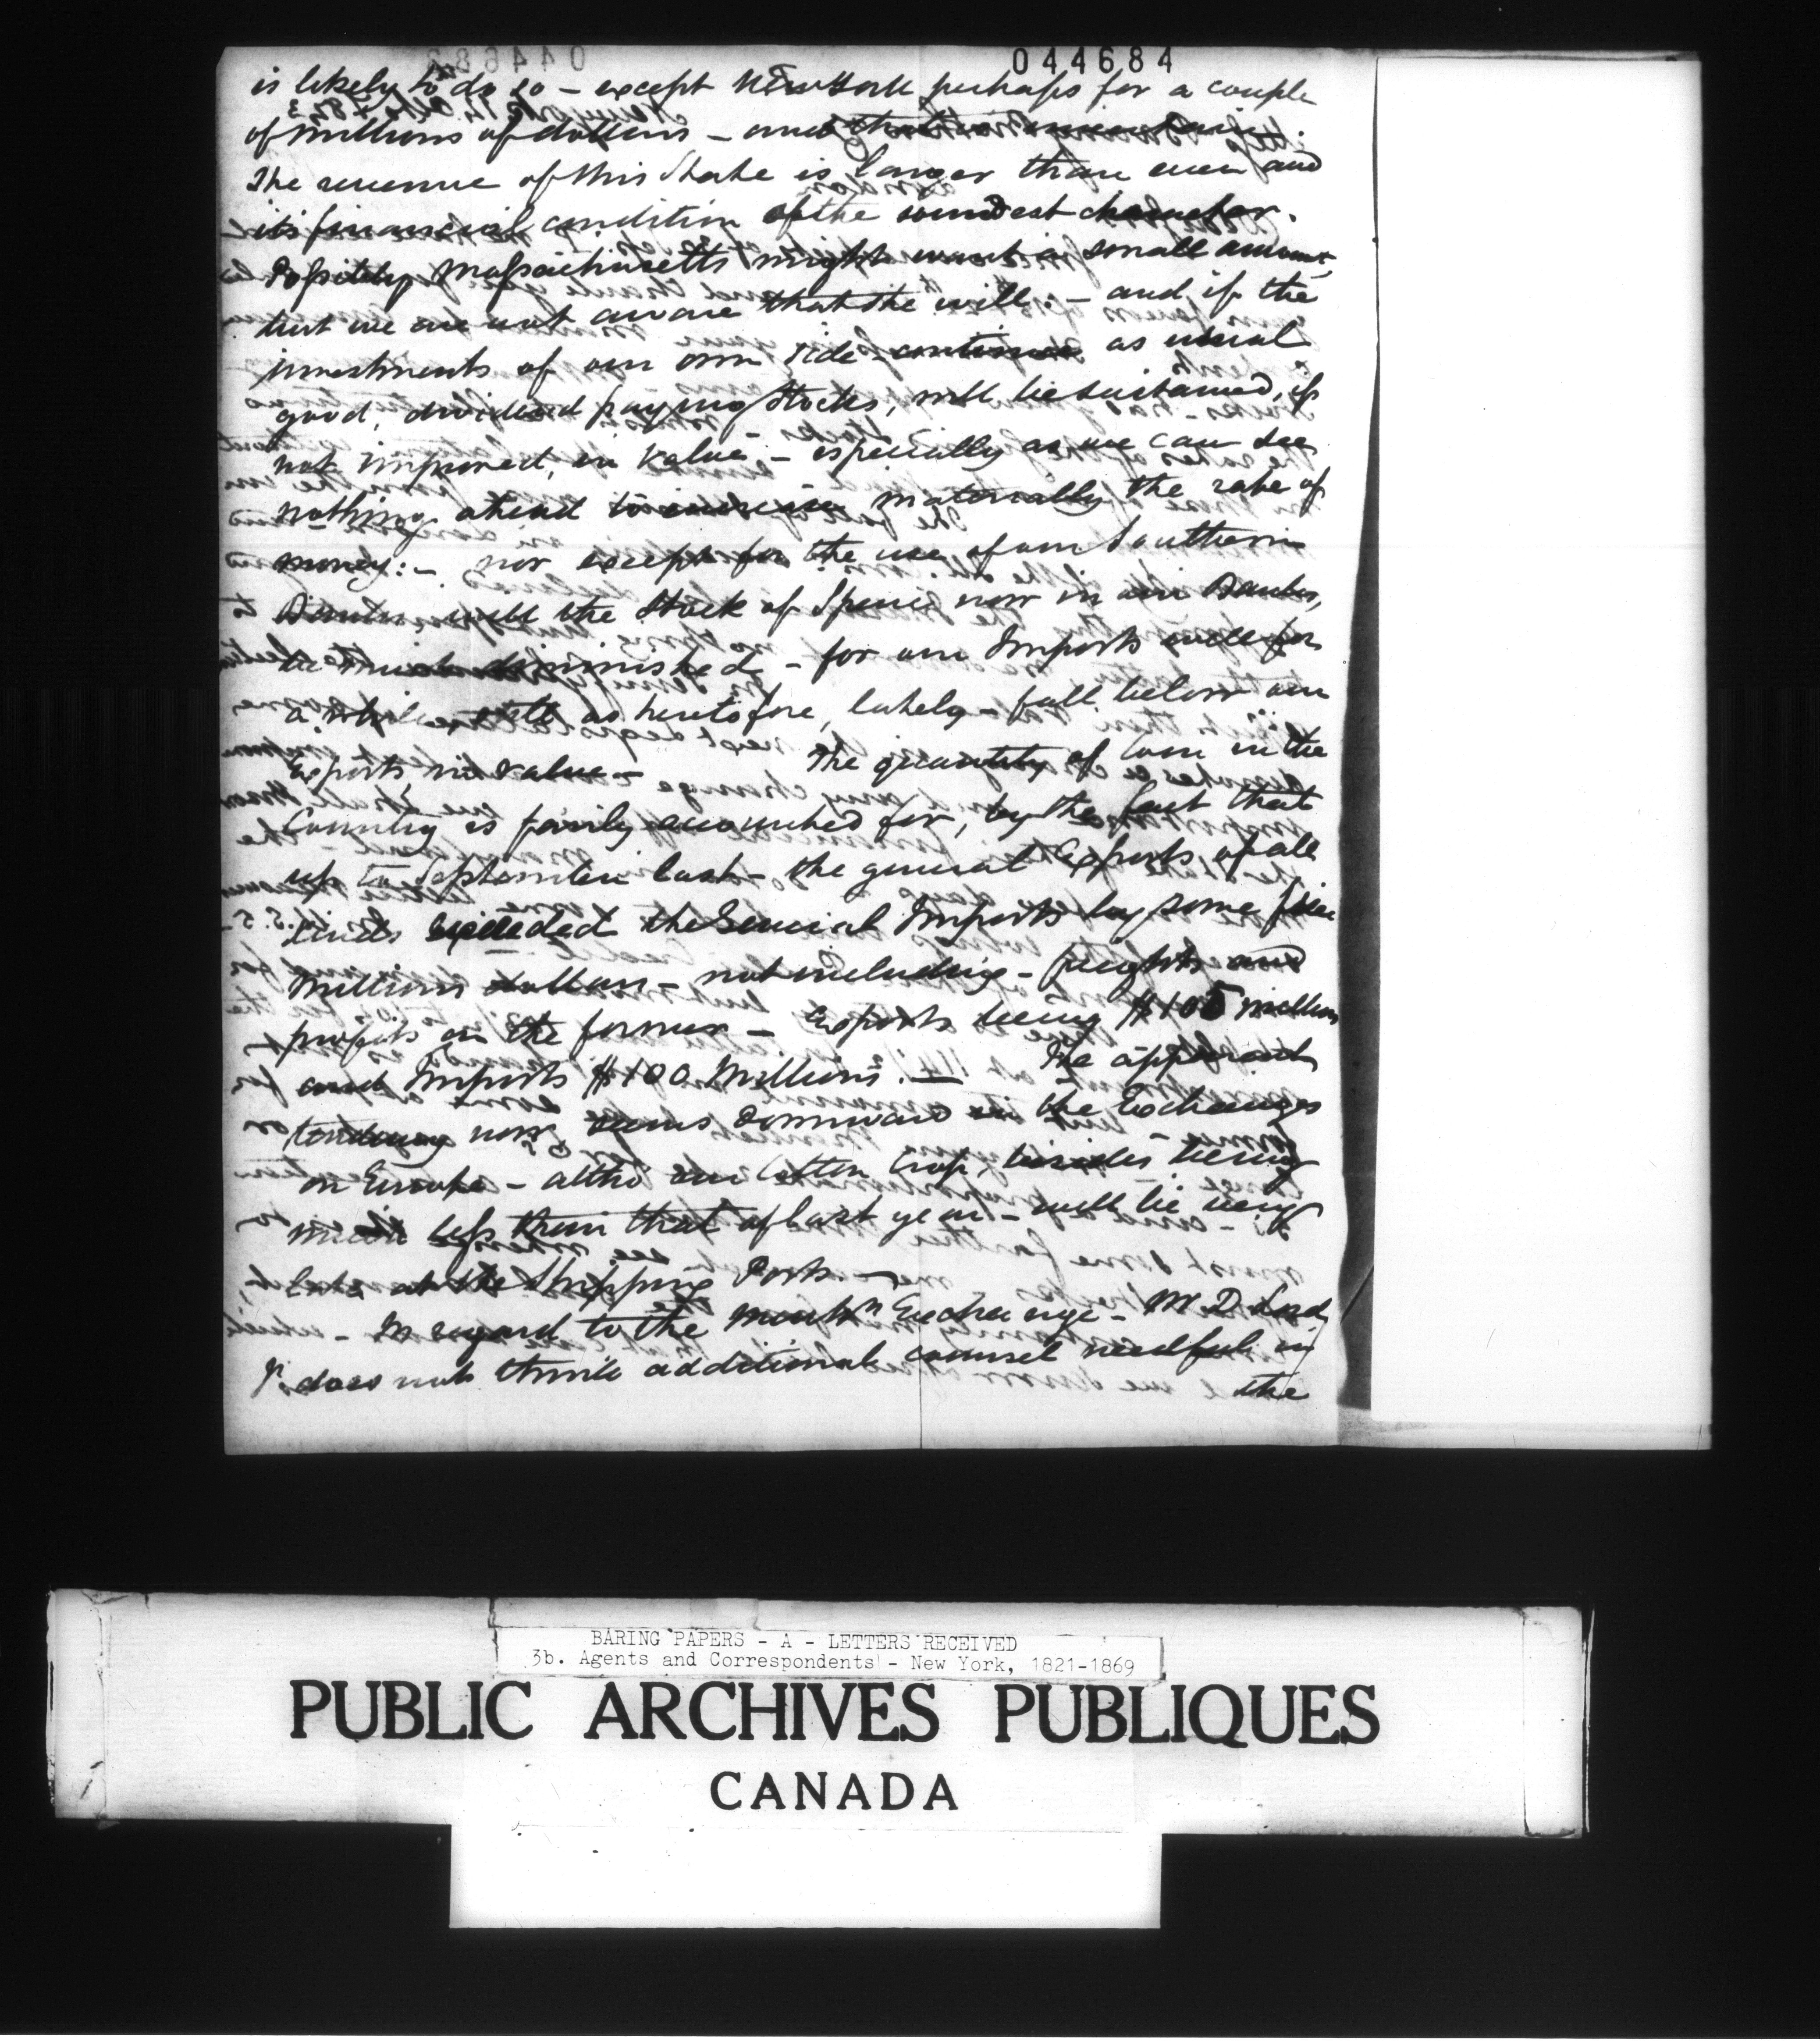 044684
is likely to do so - except New York perhaps for a couple
of millions of dollars - and that is uncertain.
The revenue of this State is larger than ever and
its financial condition of the soundest character.
Possibly Massachusetts might want a small amount,
but we are not aware that she will: - and if the
investments of our own side continue as usual
good, dividend paying Stocks, will be sustained, if
not improved, in value - especially as we can see
nothing ahead to increase materially the rate of
money: - nor except for the use of our Southern
Banks, will the Stock of Specie now in our Banks,
be much diminished - for our Imports will for
a while yet as heretofore, lately - fall below our
Exports, in value - The quantity of Coin in the
Country is fairly accounted for, by the fact that
up to September last - the general Exports of all
kinds exceeded the General Imports by some five
million dollars - not including - freights and
profits on the former - Exports being $105 millions
and Imports $100 Millions. - The apparent
tendency now seems downward in the Exchanges
on Europe - altho our Cotton Crop, besides being
much less than that of last year - will be very
late at the Shipping Ports. -
In regard to the Exchange - Mr D Lord
Jr. does not think additional counsel needful in
the
BARING PAPERS - A - LETTERS RECEIVED
3b. Agents and Correspondents - New York, 1821-1869
PUBLIC ARCHIVES PUBLIQUES
CANADA